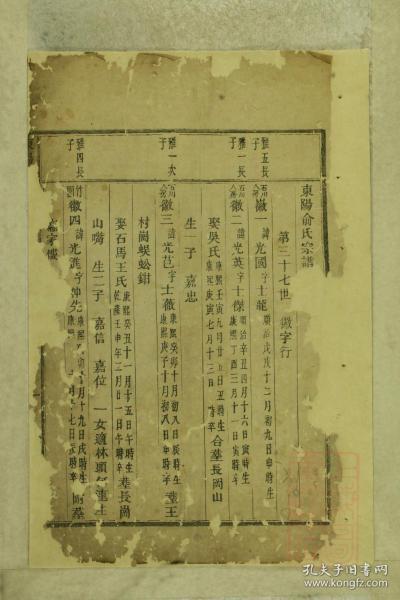 東陽俞氏宗譜
第三十七世 徽字行
雅五長子 徽一 諱光國 字士龍 順治戊戌十二月初九日申時生
雅一長子 徽二 諱光英 字士傑 順治辛丑四月十六日寅時生 康熙丁酉三月十一日寅時卒
娶吳氏 康熙壬寅九月廿五日丑時生 康熙庚寅七月十三日 時卒 合塟長岡山
生一子 嘉忠
雅一次子 徽三 諱光芭 字士薇 康熙癸卯十月初八日辰時生 康熙庚子十月初八日申時卒 塟王
村崗蜈蚣鉗
娶石馬王氏 康熙癸 十一月十五日午時生 乾隆壬申年二月廿一日午時卒 塟長崗
山嘴 生二子 嘉信 嘉位 一女適林頭
雅四長子 徽四 諱光進 字 先 月十九日戌時生 月 七日 時卒 塟
孔夫子旧书网
www.kongfz.com